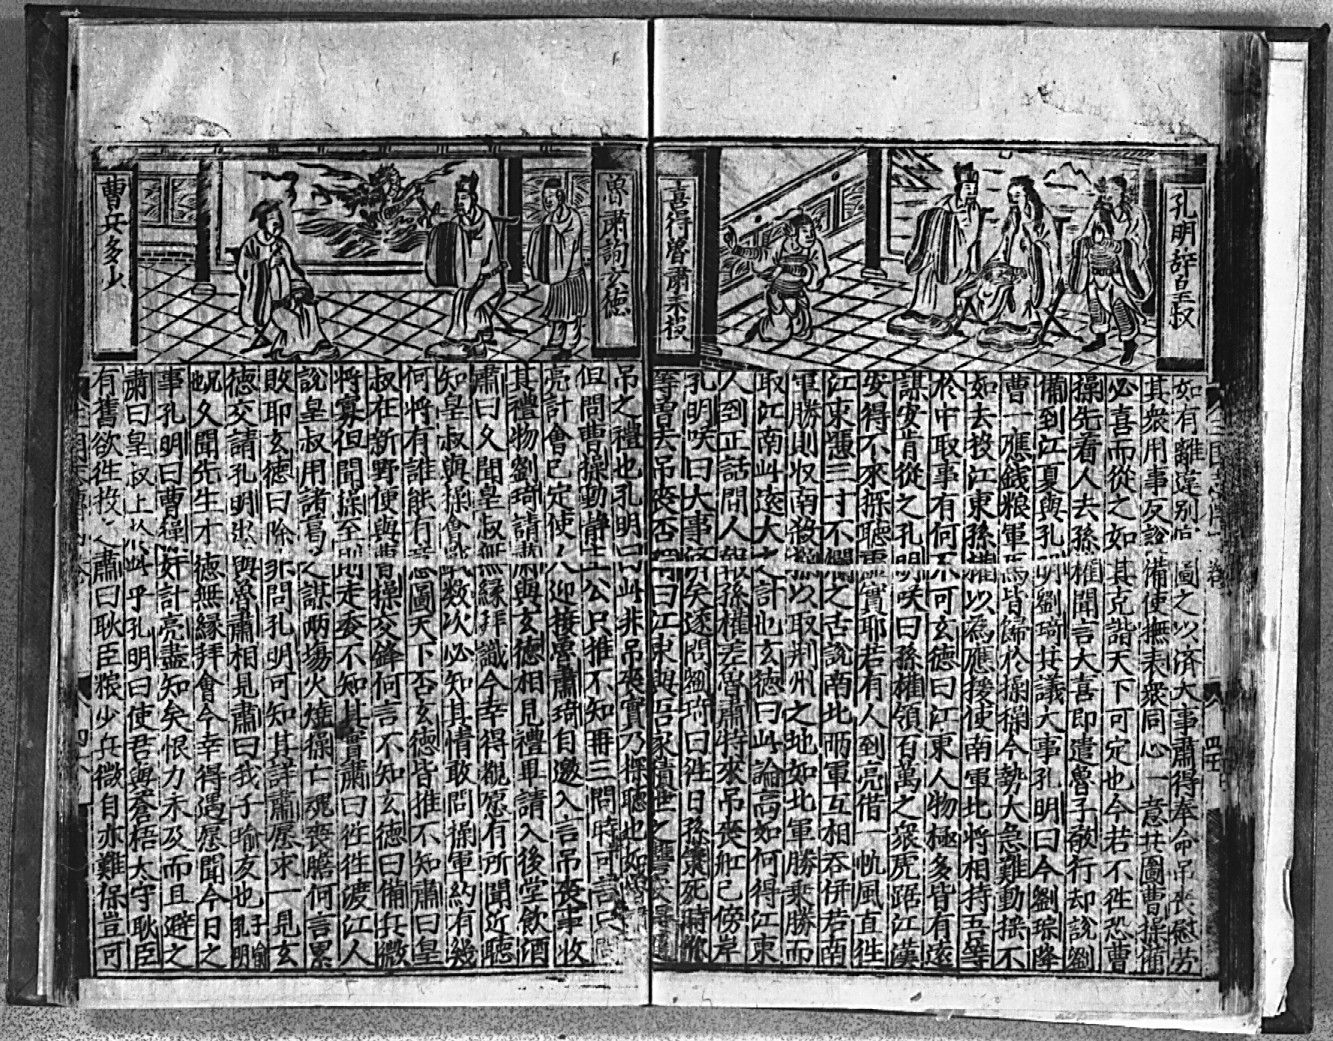 孔明辞皇叔
喜得魯肅來投
如有離違別
圖之以济大事肅得奉命吊丧慰劳
其衆用事友說備使撫表衆同心一意共圖曹操備
必喜而從之如其克諧天下可定也今若不徃恐曹
操先看人去孫權聞言大喜即遣魯子敬行却說劉
備到江夏與孔明劉琦共議大事孔明曰今劉琮降
曹一應錢粮軍馬皆歸於操操今勢大急難動揺不
如去投江東孫權以為應援使南軍北将相持吾等
於中取事有何不可玄德曰江東人物極多皆有遠
謀安肯從之孔明咲曰孫權領有萬之衆虎踞江漢
安得不來探聽虛實耶若有人到亮借一帆風直徃
江東憑三寸不爛之古說南北两軍互相吞併若南
軍勝則収南殺
以取荆州之地如北軍勝乗勝而
取江南此遠大之計也玄德曰此論高如何得江東
人到正話間人報孫權差魯肅特來吊丧舡已傍岸
孔明咲曰大事済矣遂問劉琦曰徃日孫策死時你
等曾去吊丧否
曰江東與吾家
世之
吊之禮也孔明曰此非吊丧實乃探聽也如
但問曹操動静主公只推不知再三問時可言只問
亮計會已定使人迎接魯肅琦自邀入言吊丧事收
其禮物劉琦請肅與玄德相見禮畢請入後堂飲酒
肅曰久聞皇叔無縁拜識今幸得覩愿有所聞近聽
知皇叔與操會戰数次必知其情敢問操軍約有幾
何将有誰能有意圖天下否玄德皆推不知肅曰皇
叔在新野便與曹操交鋒何言不知玄德曰備兵微
将寡但聞操至則走委不知其實肅曰徃徃渡江人
說皇叔用諸葛之謀两場火燒操亡魂丧膽何言累
敗耶玄德曰除非問孔明可知其詳肅愿求一見玄
德交請孔明出與魯肅相見肅曰我子瑜友也孔明
况久聞先生才德無縁拜會今幸得遇愿聞今日之
事孔明曰曹操奸計亮盡知矣恨力未及而且避之
肅曰皇叔止於此乎孔明曰使君與蒼梧太守耿臣
有舊欲徃投之肅曰耿臣粮少兵微自亦難保豈可
魯肅詢玄德
曹兵多少